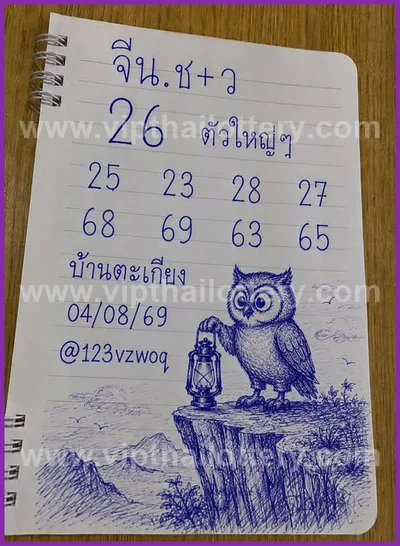 จีน.ช+ว
26 ตัวใหญ่ๆ
www.vipthailottery.com
25 23 28 27
68 69 63 65
บ้านตะเกียง
www.vipthailottery.com
04/08/69
@123vzwoq
www.vipthailottery.com